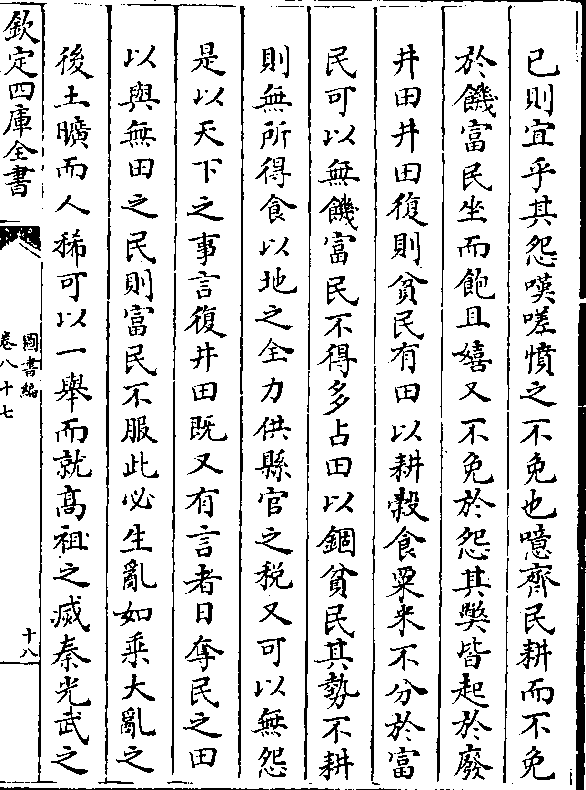 已則宜乎其怨嘆嗟憤之不免也噫齊民耕而不免
於饑富民坐而飽且嬉又不免於怨其獘皆起於廢
井田井田復則貧民有田以耕穀食粟米不分於富
民可以無饑富民不得多占田以錮貧民其勢不耕
則無所得食以地之全力供縣官之税又可以無怨
是以天下之事言復井田既又有言者曰奪民之田
以與無田之民則富民不服此必生亂如乘大亂之
後土曠而人稀可以一舉而就髙祖之滅秦光武之
欽定四庫全書
圖書編
卷八十七
十八